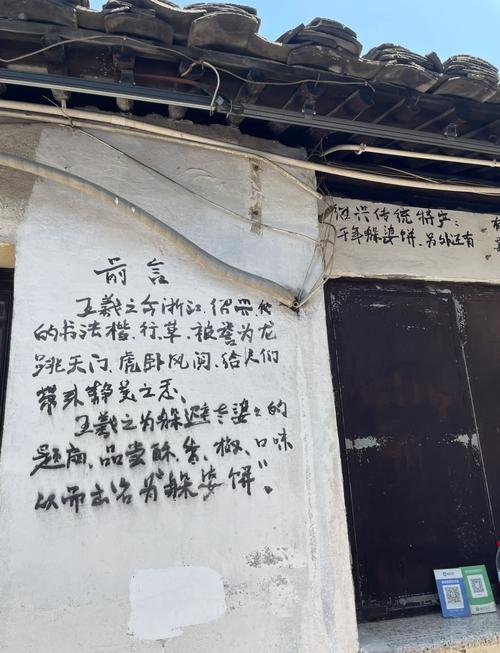 前言
王羲之为浙江.绍兴代
的书法楷.行草.被誉为龙
跳天门.虎卧风阁.给人们
带来静美之态、
王羲之为躲避老婆的
题扇、品尝酥、香、椒、口味
从而出名为"躲婆饼"。
绍兴传统特产：
千年躲婆饼.另外还有